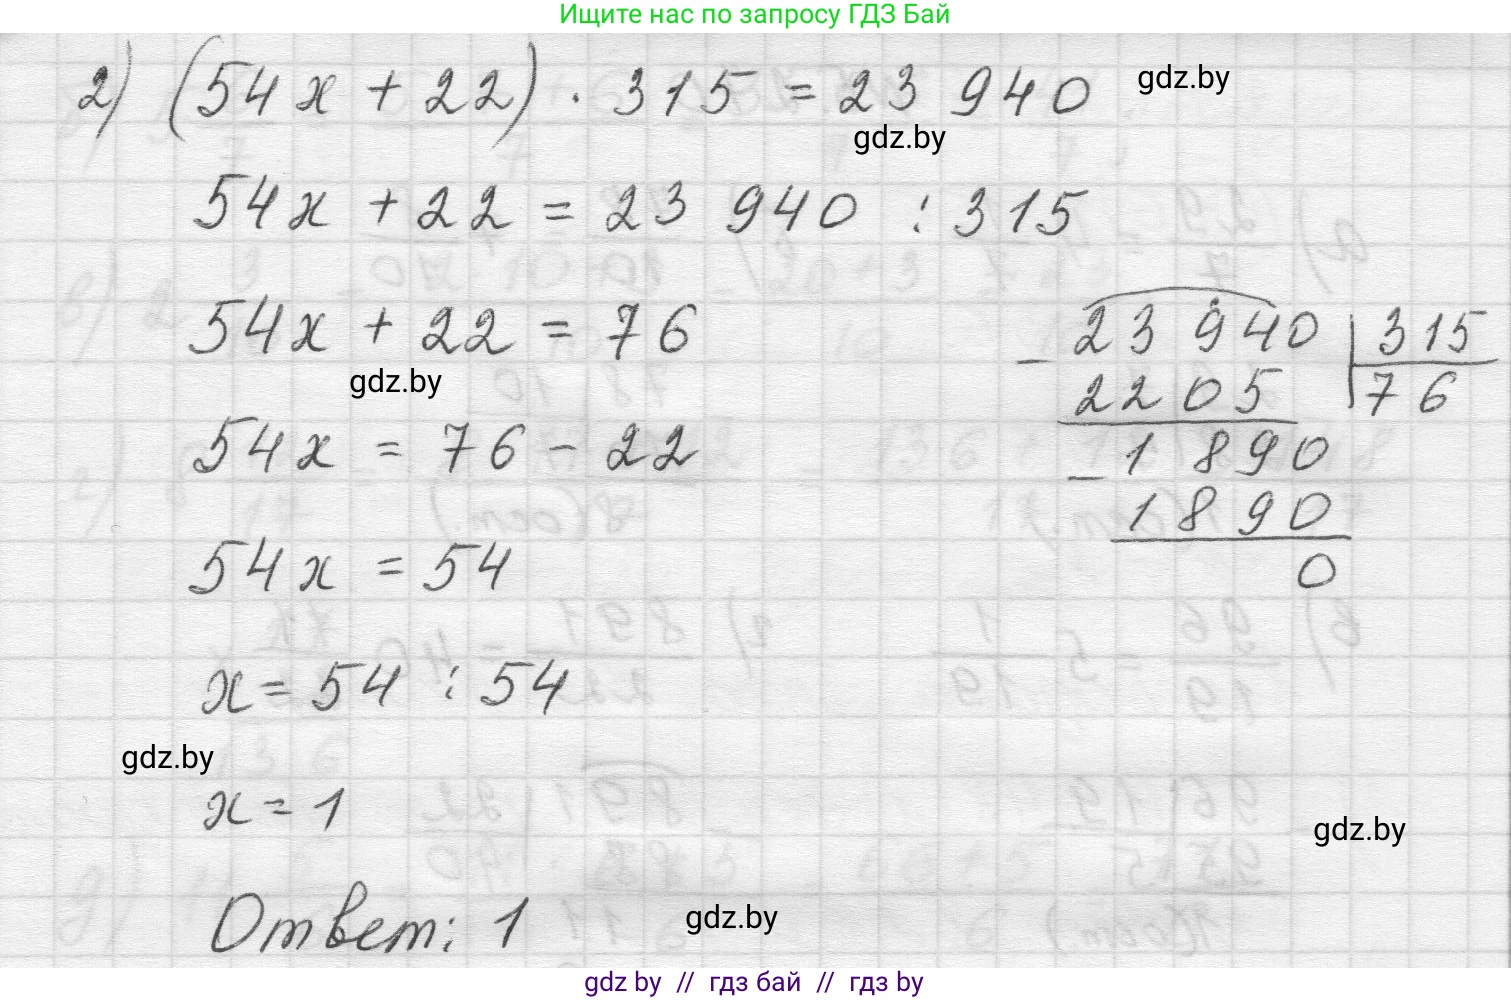 Ищите нас по запросу ГДЗ Бай
2) (54x + 22) · 315 = 23 940
gdz.by
gdz.by
54x + 22 = 23 940 : 315
54x + 22 = 76
gdz.by
54x = 76 - 22
54x = 54
x = 54 : 54
gdz.by
x = 1
Ответ: 1
- 23 940 | 315
2205 | 76
- 1 890
1 890
0
gdz.by
gdz.by
gdz by // гдз бай // гдз by